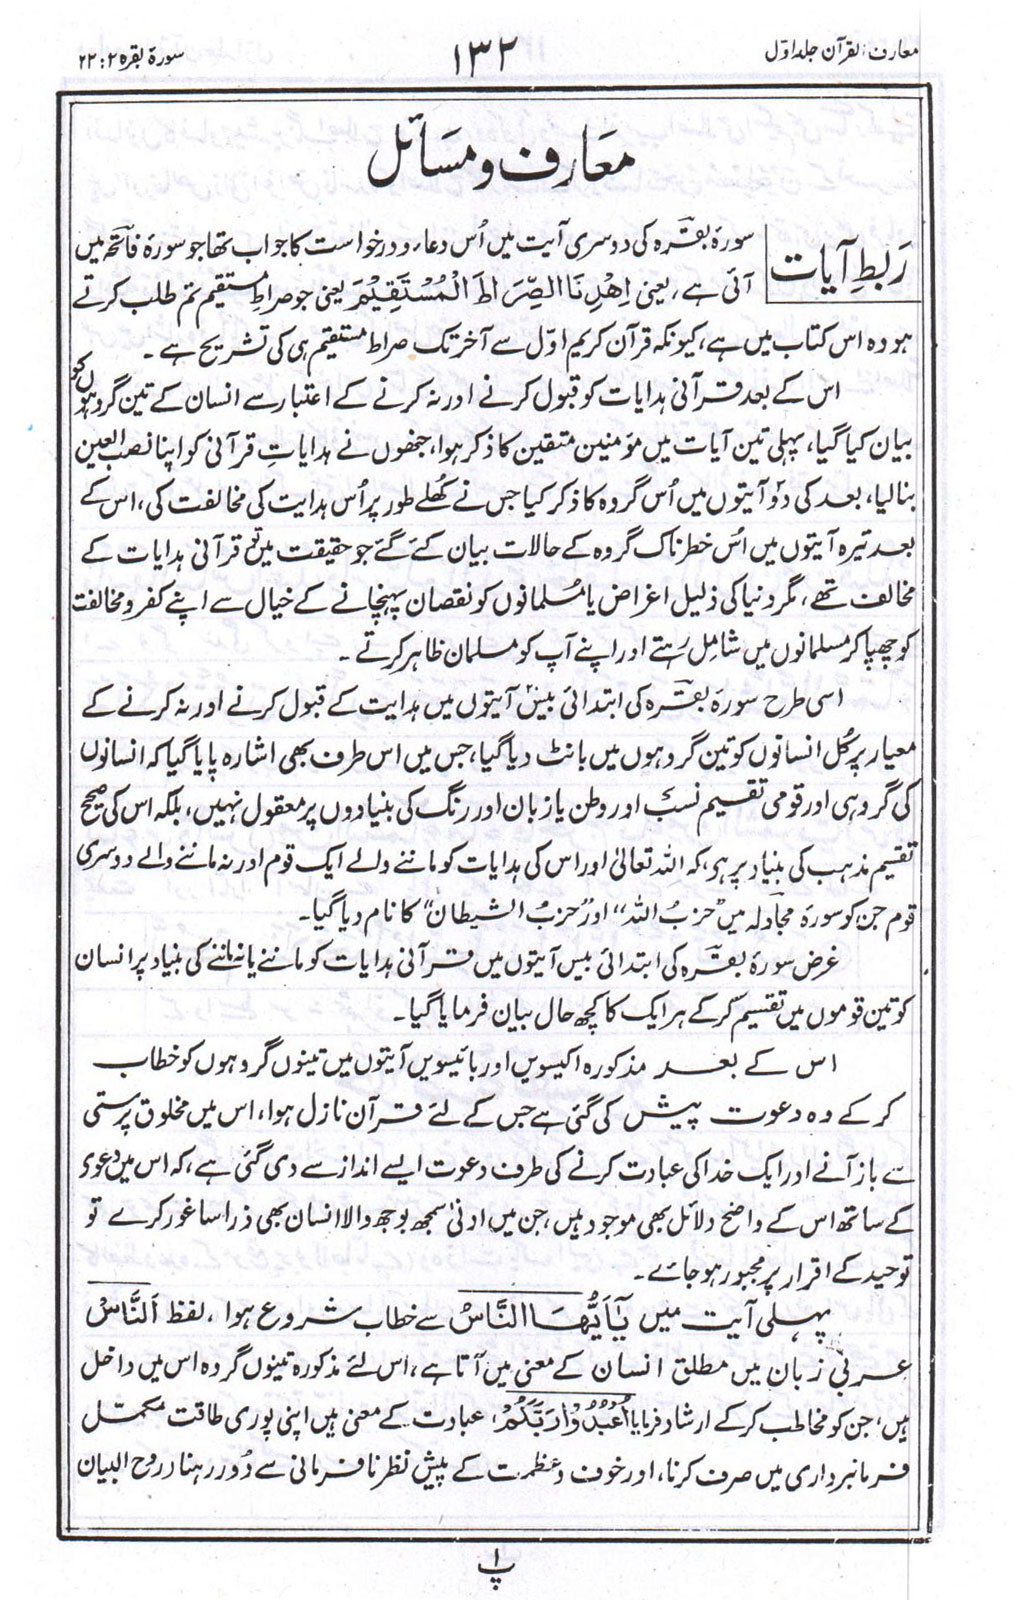 معارف القرآن جلد اوّل
۱۳۲
سورۃ بقرہ ۲ : ۲۲
معارف و مسائل
ربطِ آیات
سورۂ بقرہ کی دوسری آیت میں اُس دعاء و درخواست کا جواب تھا جو سورۂ فاتحہ میں
آئی ہے، یعنی اِھْدِنَا الصِّرَاطَ الْمُسْتَقِیْمَ یعنی جو صراطِ مستقیم تم طلب کرتے
ہو وہ اس کتاب میں ہے، کیونکہ قرآن کریم اوّل سے آخر تک صراط مستقیم ہی کی تشریح ہے۔
اس کے بعد قرآنی ہدایات کو قبول کرنے اور نہ کرنے کے اعتبار سے انسان کے تین گروہوں کو
بیان کیا گیا، پہلی تین آیات میں مؤمنین متقین کا ذکر ہوا، جنھوں نے ہدایاتِ قرآنی کو اپنا نصب العین
بنا لیا، بعد کی دو آیتوں میں اُس گروہ کا ذکر کیا جس نے کُھلے طور پر اُس ہدایت کی مخالفت کی، اس کے
بعد تیرہ آیتوں میں اُس خطرناک گروہ کے حالات بیان کئے گئے جو حقیقت میں تو قرآنی ہدایات کے
مخالف تھے، مگر دنیا کی ذلیل اغراض یا مُسلمانوں کو نقصان پہنچانے کے خیال سے اپنے کفر و مخالفت
کو چھپا کر مسلمانوں میں شامل رہتے اور اپنے آپ کو مسلمان ظاہر کرتے۔
اسی طرح سورۂ بقرہ کی ابتدائی بیس آیتوں میں ہدایت کے قبول کرنے اور نہ کرنے کے
معیار پر کُل انسانوں کو تین گروہوں میں بانٹ دیا گیا، جس میں اس طرف بھی اشارہ پایا گیا کہ انسانوں
کی گروہی اور قومی تقسیم نسب اور وطن یا زبان اور رنگ کی بنیادوں پر معقول نہیں، بلکہ اس کی صحیح
تقسیم مذہب کی بنیاد پر ہی، کہ اللہ تعالیٰ اور اس کی ہدایات کو ماننے والے ایک قوم اور نہ ماننے والے دوسری
قوم جن کو سورۂ مجادلہ میں "حزبُ اللہ" اور "حزبُ الشیطان" کا نام دیا گیا۔
غرض سورۂ بقرہ کی ابتدائی بیس آیتوں میں قرآنی ہدایات کو ماننے یا نہ ماننے کی بنیاد پر انسان
کو تین قوموں میں تقسیم کرکے ہر ایک کا کچھ حال بیان فرمایا گیا۔
اس کے بعد مذکورہ اکیسویں اور بائیسویں آیتوں میں تینوں گروہوں کو خطاب
کرکے وہ دعوت پیش کی گئی ہے جس کے لئے قرآن نازل ہوا، اس میں مخلوق پرستی
سے باز آنے اور ایک خدا کی عبادت کرنے کی طرف دعوت ایسے انداز سے دی گئی ہے، کہ اس میں دعویٰ
کے ساتھ اس کے واضح دلائل بھی موجود ہیں، جن میں ادنیٰ سمجھ بوجھ والا انسان بھی ذرا سا غور کرے تو
توحید کے اقرار پر مجبور ہوجائے۔
پہلی آیت میں یٰٓاَیُّھَا النَّاسُ سے خطاب شروع ہوا، لفظ اَلنَّاسُ
عربی زبان میں مطلق انسان کے معنی میں آتا ہے، اس لئے مذکورہ تینوں گروہ اس میں داخل
ہیں، جن کو مخاطب کرکے ارشاد فرمایا اُعْبُدُوْا رَبَّکُمْ، عبادت کے معنی ہیں اپنی پوری طاقت مکمل
فرمانبرداری میں صرف کرنا، اور خوف و عظمت کے پیش نظر نافرمانی سے دُور رہنا (روح البیان
پ ۱